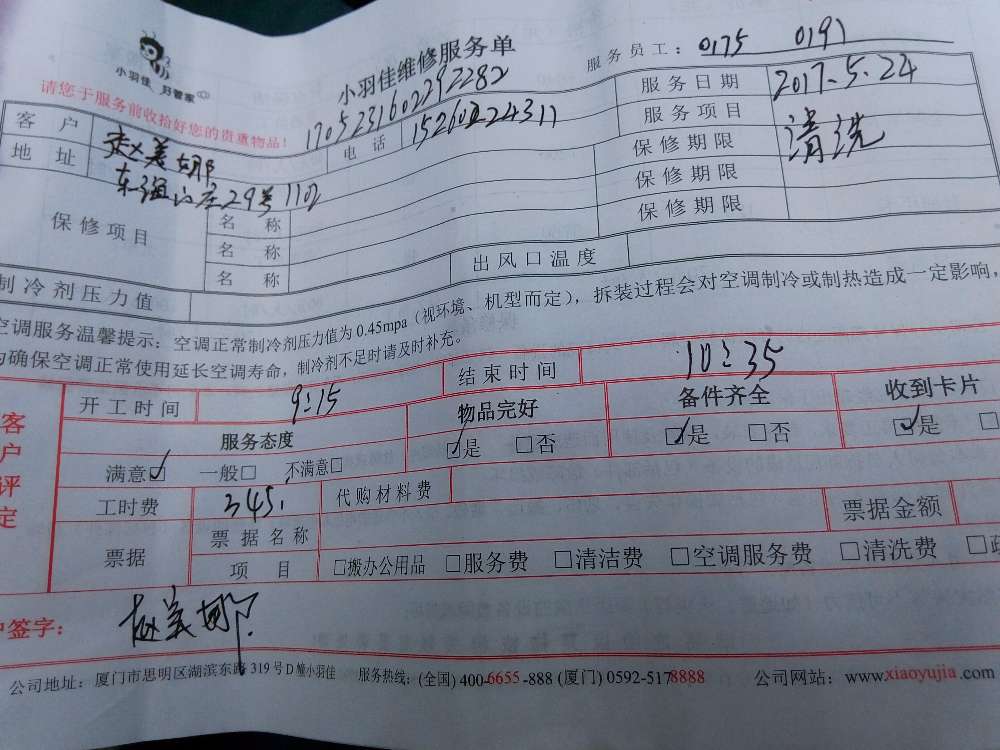 小羽佳 好管家
小羽佳维修服务单
服务员工: 0175 0191
请您于服务前收拾好您的贵重物品!
1705231602292282
客户 赵美娜 电话 15260224311 服务日期 2017.5.24
地址 29号1102 服务项目 清洗
保修项目 名称 保修期限
名称 保修期限
名称 保修期限
制冷剂压力值 出风口温度
空调服务温馨提示: 空调正常制冷剂压力值为 0.45mpa (视环境、机型而定), 拆装过程会对空调制冷或制热造成一定影响,
为确保空调正常使用延长空调寿命, 制冷剂不足时请及时补充。
客户评定
开工时间 9:15 结束时间 10:35
服务态度 物品完好 备件齐全 收到卡片
满意☑ 一般□ 不满意□ ☑是 □否 ☑是 □否 ☑是 □
工时费 345. 代购材料费
票据 票据名称 票据金额
项目 □搬办公用品 □服务费 □清洁费 □空调服务费 □清洗费 □
户签字: 赵美娜
公司地址: 厦门市思明区湖滨东路 319 号 D 幢小羽佳 服务热线: (全国) 400-6655-888 (厦门) 0592-5178888 公司网站: www.xiaoyujia.com